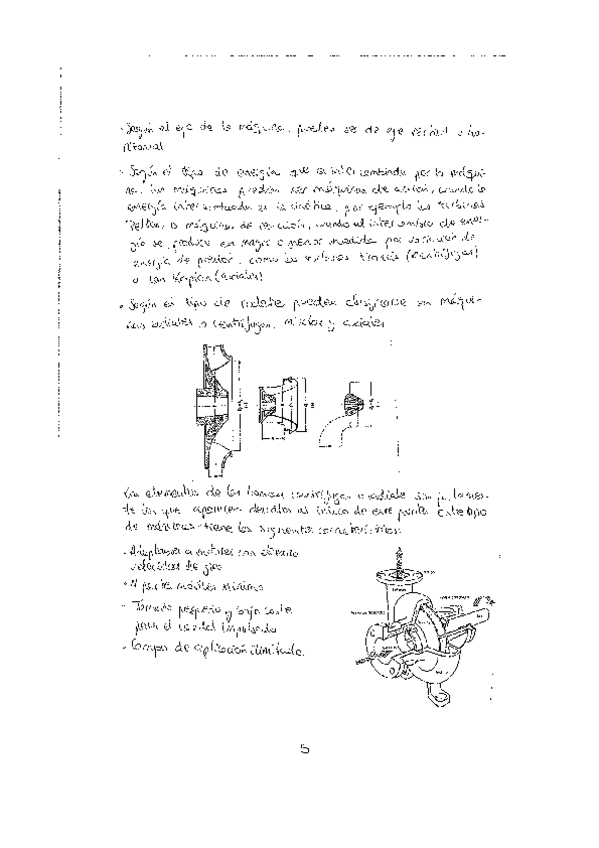 · Según el eje de la máquina, pueden ser de eje vertical u ho-
rizontal
· Según el tipo de energía que es intercambiada por la máqui-
na, las máquinas pueden ser máquinas de acción, cuando la
energía intercambiada es la cinética, por ejemplo las turbinas
Pelton, o máquinas de reacción, cuando el intercambio de ener-
gía se produce en mayor o menor medida por variación de
energía de presión, como las turbinas Francis (centrífugas)
o las Kaplan (axiales)
· Según el tipo de rodete pueden clasificarse en máqui-
nas radiales o centrífugas, mixtas y axiales
Los elementos de las bombas centrífugas o radiales son justamen-
te los que aparecen al inicio de este punto. Este tipo
de máquinas tiene las siguientes características:
· Adaptarse a motores con elevada
velocidad de giro
· Nº partes móviles mínimo
· Tamaño pequeño y bajo coste
para el caudal impulsado
· Campo de aplicación ilimitado.
5